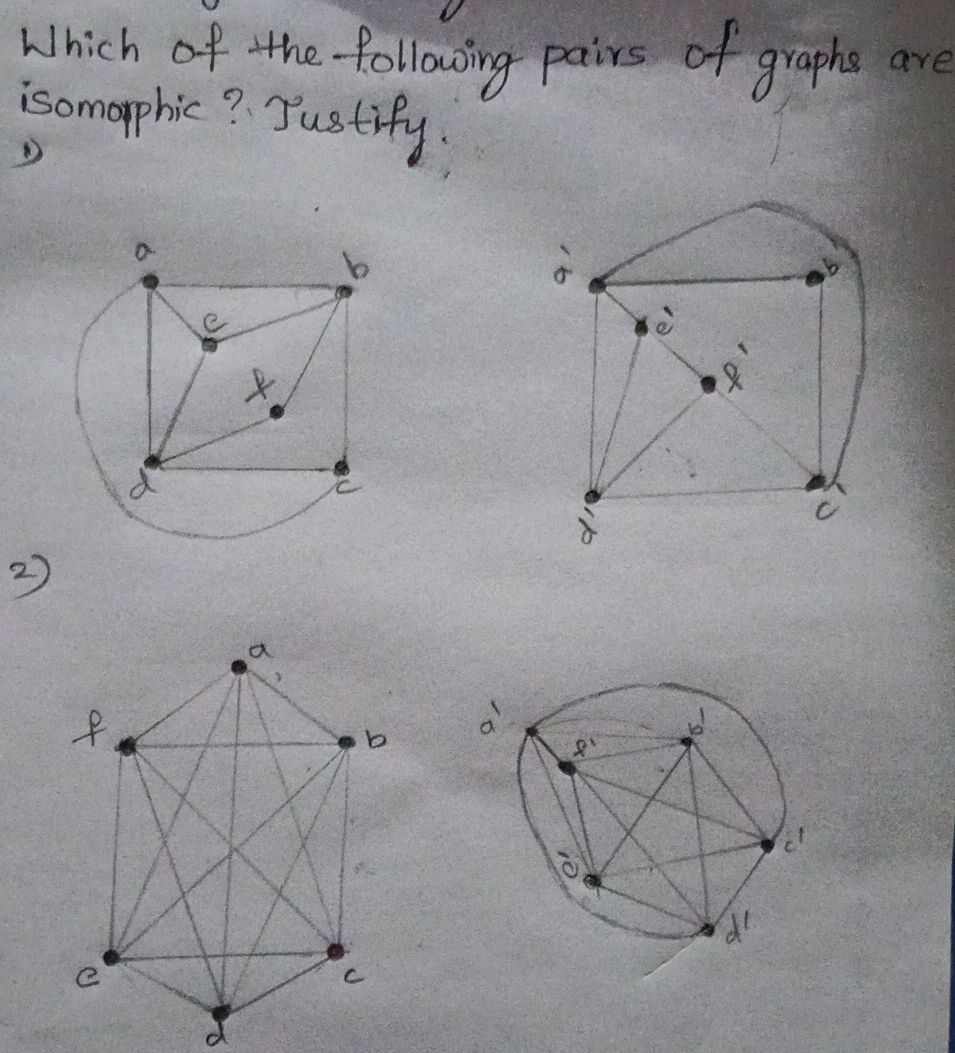 Which of the following pairs of graphs are
isomorphic? Justify.
1)
a
b
e
f
d
c
a'
b'
e'
f'
d'
c'
2)
a
f
b
e
c
d
a'
b'
f'
c'
e'
d'